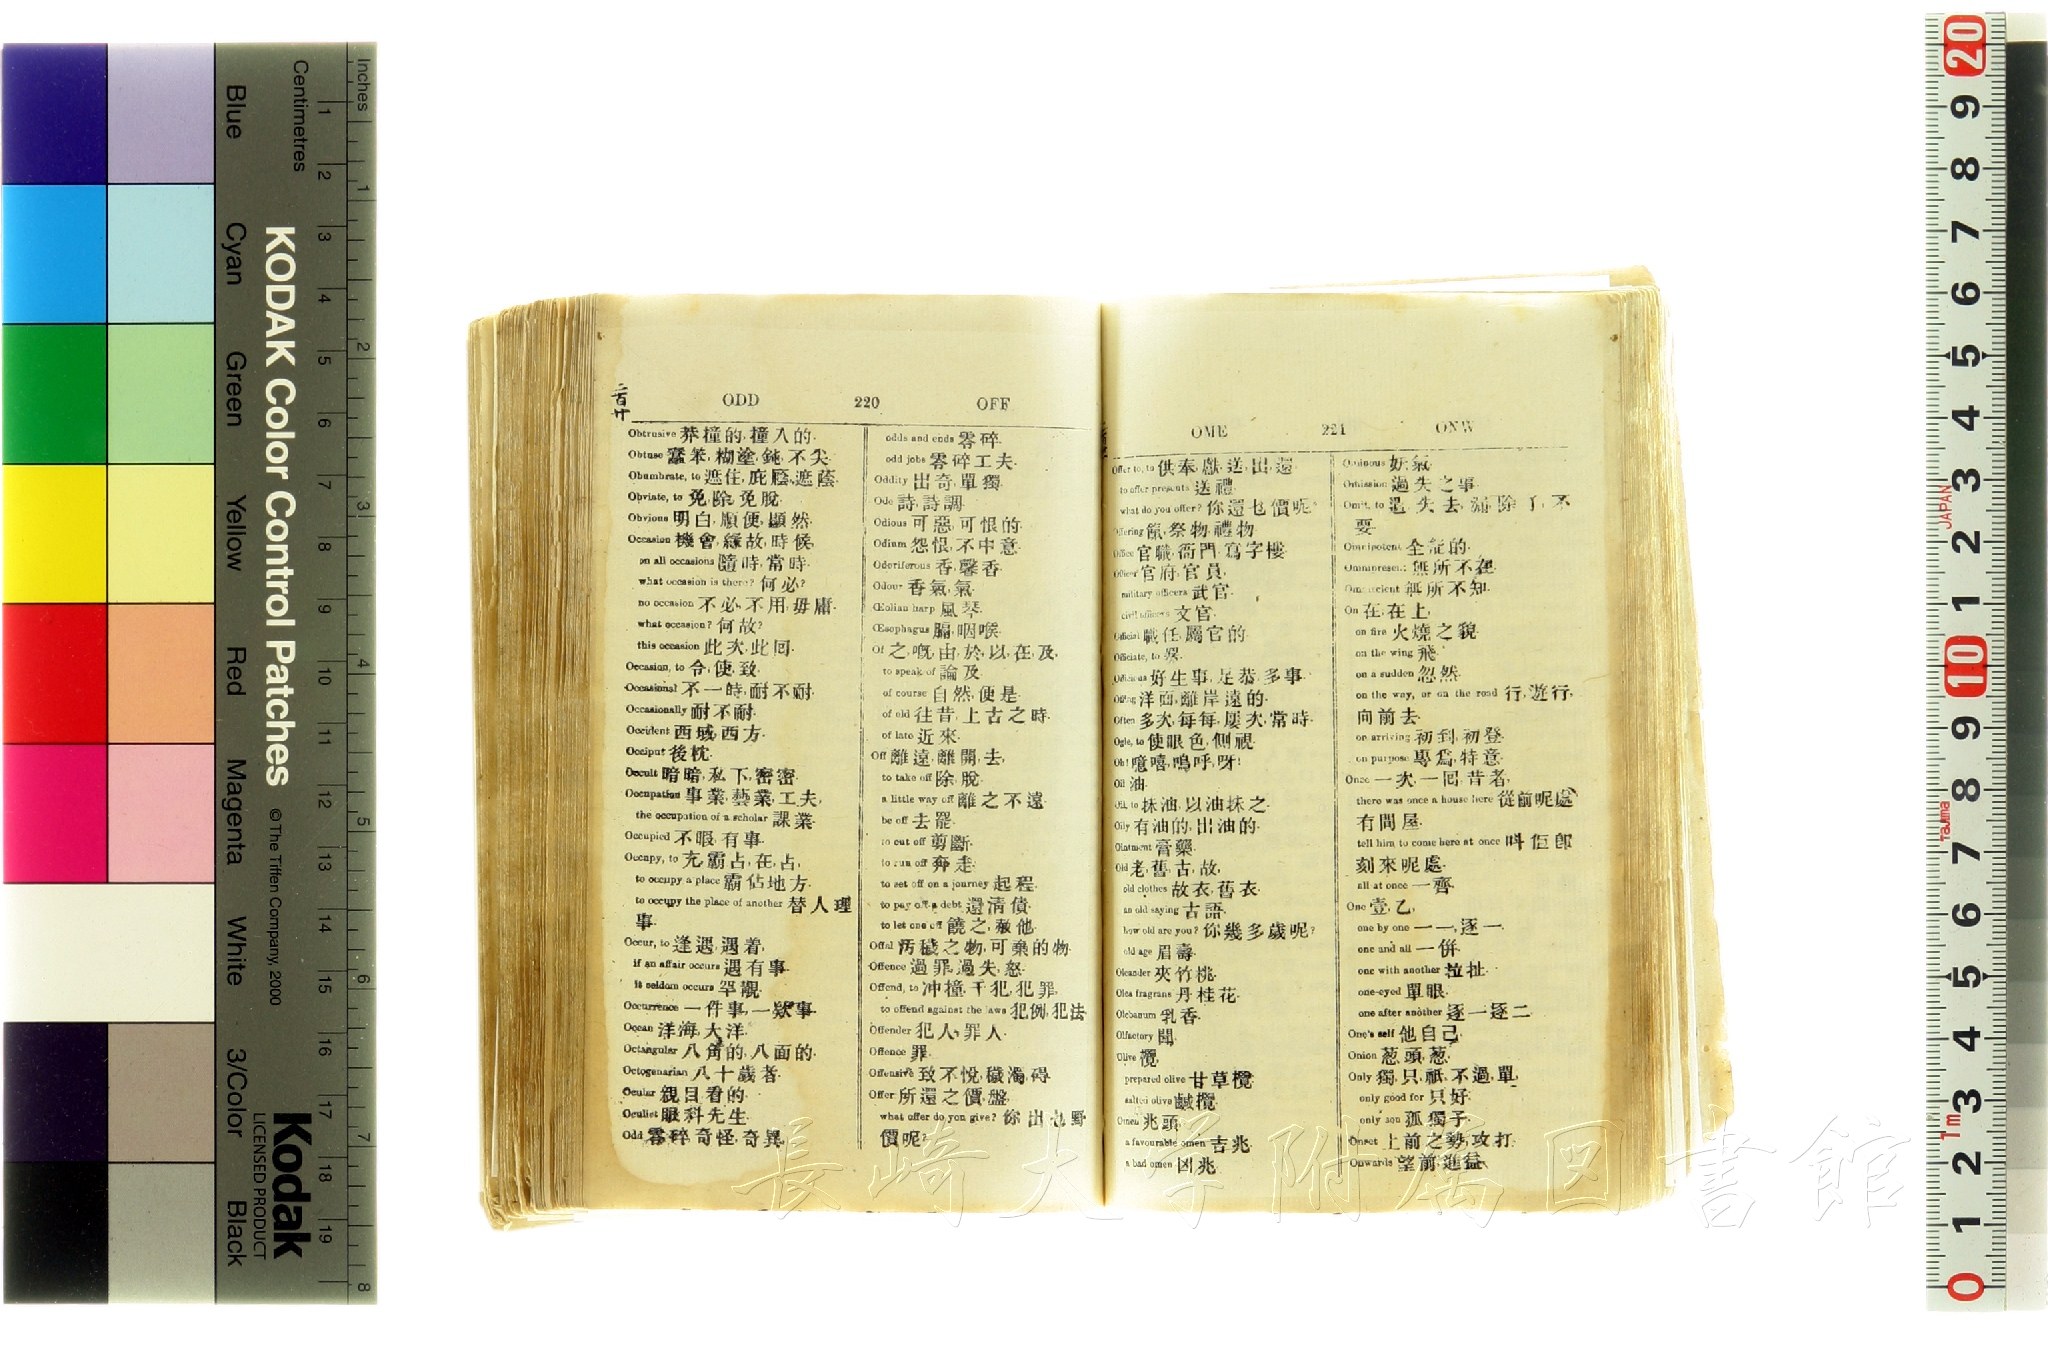 Inches
Centimetres
KODAK Color Control Patches © The Tiffen Company, 2000
Blue Cyan Green Yellow Red Magenta White 3/Color Black
Kodak
LICENSED PRODUCT
二百廿
ODD 220 OFF
Obtrusive 莽撞的, 撞入的.
Obtuse 蠢笨, 糊塗, 鈍, 不尖.
Obumbrate, to 遮住, 庇廕, 遮蔭.
Obviate, to 免除, 免脫.
Obvious 明白, 順便, 顯然.
Occasion 機會, 緣故, 時候,
on all occasions 隨時, 常時.
what occasion is there? 何必?
no occasion 不必, 不用, 毋庸.
what occasion? 何故?
this occasion 此次, 此回.
Occasion, to 令, 使, 致.
Occasional 不一時, 耐不耐.
Occasionally 耐不耐.
Occident 西域, 西方.
Occiput 後枕.
Occult 暗暗, 私下, 密密.
Occupation 事業, 藝業, 工夫,
the occupation of a scholar 課業.
Occupied 不暇, 有事.
Occupy, to 充, 霸占, 在, 占,
to occupy a place 霸佔地方.
to occupy the place of another 替人理
事.
Occur, to 逢遇, 遇着,
if an affair occurs 遇有事.
it seldom occurs 罕覯.
Occurrence 一件事, 一欵事.
Ocean 洋海, 大洋.
Octangular 八角的, 八面的.
Octogenarian 八十歲者.
Ocular 親目看的.
Oculist 眼科先生.
Odd 零碎, 奇怪, 奇異,
odds and ends 零碎.
odd jobs 零碎工夫.
Oddity 出奇, 單獨.
Ode 詩, 詩調.
Odious 可惡, 可恨的.
Odium 怨恨, 不中意.
Odoriferous 香, 馨香.
Odour 香氣, 氣.
Œolian harp 風琴.
Œsophagus 膈, 咽喉.
Of 之, 嘅, 由, 於, 以, 在, 及,
to speak of 論及.
of course 自然, 便是.
of old 往昔, 上古之時.
of late 近來.
Off 離遠, 離開, 去,
to take off 除脫.
a little way off 離之不遠.
be off 去罷.
to cut off 剪斷.
to run off 奔走.
to set off on a journey 起程.
to pay off a debt 還清債.
to let one off 饒之, 赦他.
Offal 污穢之物, 可棄的物.
Offence 過罪, 過失, 怒.
Offend, to 冲撞, 干犯, 犯罪,
to offend against the laws 犯例, 犯法.
Offender 犯人, 罪人.
Offence 罪.
Offensive 致不悅, 穢濁, 碍.
Offer 所還之價, 盤,
what offer do you give? 你出乜野
價呢?
OME 221 ONW
Offer to, to 供奉, 獻, 送, 出, 還.
to offer presents 送禮.
what do you offer? 你還乜價呢?
Offering 祭物, 禮物.
Office 官職, 衙門, 寫字樓.
Officer 官府, 官員,
military officers 武官.
civil officers 文官.
Official 職任, 屬官的.
Officiate, to
Officious 好生事, 足恭, 多事.
Offing 洋面, 離岸遠的.
Often 多次, 每每, 屢次, 常時.
Ogle, to 使眼色, 側視.
Oh! 噫嘻, 嗚呼, 呀!
Oil 油.
Oil, to 抹油, 以油抹之.
Oily 有油的, 出油的.
Ointment 膏藥.
Old 老, 舊, 古, 故,
old clothes 故衣, 舊衣.
an old saying 古語.
how old are you? 你幾多歲呢?
old age 眉壽.
Oleander 夾竹桃.
Olea fragrans 丹桂花.
Olebanum 乳香.
Olfactory 聞.
Olive 欖,
prepared olive 甘草欖.
salted olive 鹹欖.
Omen 兆頭,
a favourable omen 吉兆.
a bad omen 凶兆.
Ominous 妖氣.
Omission 過失之事.
Omit, to 遺失去, 漏除了, 不
要.
Omnipotent 全能的.
Omnipresent 無所不在.
Omniscient 無所不知.
On 在, 在上,
on fire 火燒之貌.
on the wing 飛.
on a sudden 忽然.
on the way, or on the road 行, 遊行,
向前去.
on arriving 初到, 初登.
on purpose 專爲, 特意.
Once 一次, 一囘, 昔者,
there was once a house here 從前呢處
有間屋.
tell him to come here at once 呌佢卽
刻來呢處.
all at once 一齊.
One 壹, 乙,
one by one 一一, 逐一.
one and all 一併.
one with another 拉扯.
one-eyed 單眼.
one after another 逐一逐二.
One's self 他自己.
Onion 葱頭, 葱.
Only 獨, 只, 祇, 不過, 單,
only good for 只好.
only son 孤獨子.
Onset 上前之勢, 攻打.
Onwards 望前, 進益.
長崎大学附属図書館
JAPAN
Tajima
1m